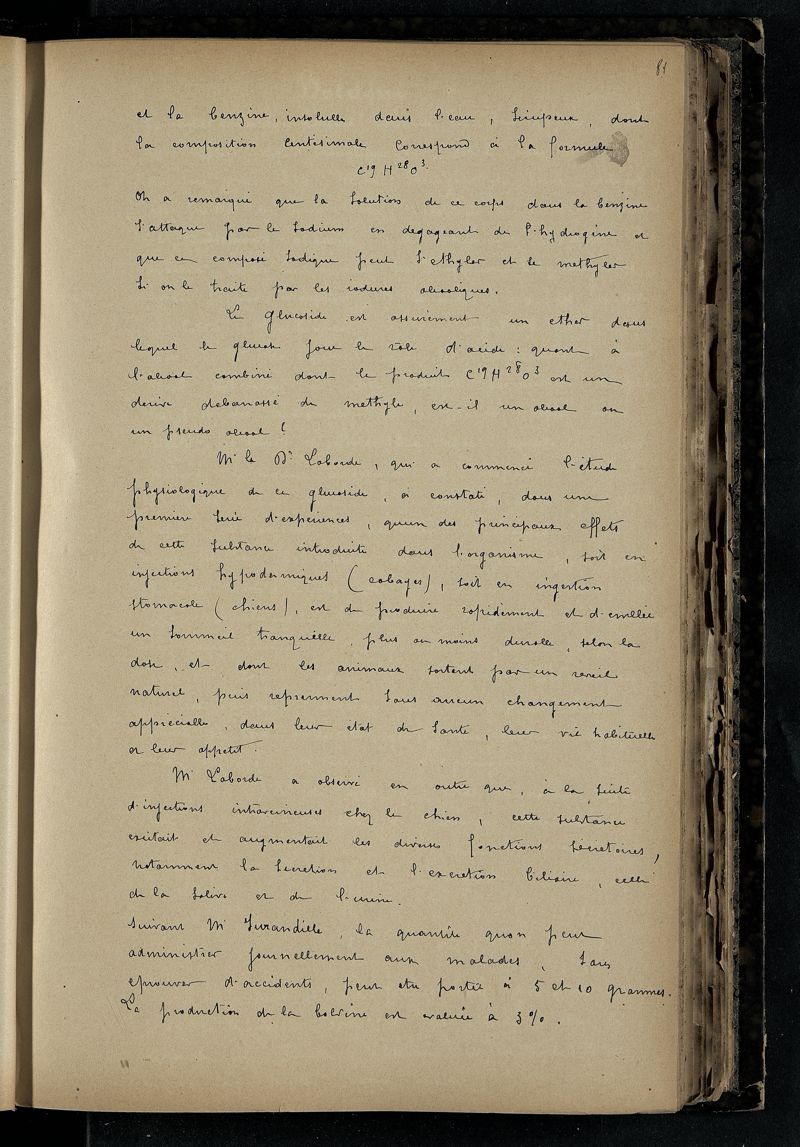 81
et la benzine, insoluble dans l'eau, sirupeux, dont
la composition centésimale correspond à la formule
C¹⁹ H²⁸ O³.
On a remarqué que la solution de ce corps dans la benzine
s'attaque par le sodium en degageant de l'hydrogène et
que ce composé sodique peut s'ethyler et se methyler
si on le traite par les iodures alcooliques.
Le Glucoside est assurement un ether dans
lequel le glucose joue le role d'acide : quant à
l'alcool combiné dont le produit C¹⁹ H²⁸ O³ est un
derivé debarassé de methyle, est-il un alcool ou
un pseudo alcool ?
Mr le Dr Laborde, qui a commencé l'étude
physiologique de ce glucoside, a constaté, dans une
premiere serie d'experiences, qu'un des principaux effets
de cette substance introduite dans l'organisme, soit en
injections hypodermiques (cobayes), soit en ingestion
stomacale (chiens), est de produire rapidement et d'emblée
un sommeil tranquille, plus ou moins durable, selon la
dose, et dont les animaux sortent par un reveil
naturel, puis reprennent sans aucun changement
appreciable, dans leur etat de santé, leur vie habituelle
et leur appetit.
Mr Laborde a observé en outre que, à la suite
d'injections intraveineuses chez le chien, cette substance
excitait et augmentait les diverses fonctions secretoires,
notamment la secretion et l'excretion biliaire, celle
de la salive et de l'urine.
Suivant Mr , la quantité quon peut
administrer journellement aux malades, sans
eprouver d'accidents, peut etre portée à 5 et 10 grammes.
La production de la est evaluée à 3 %.